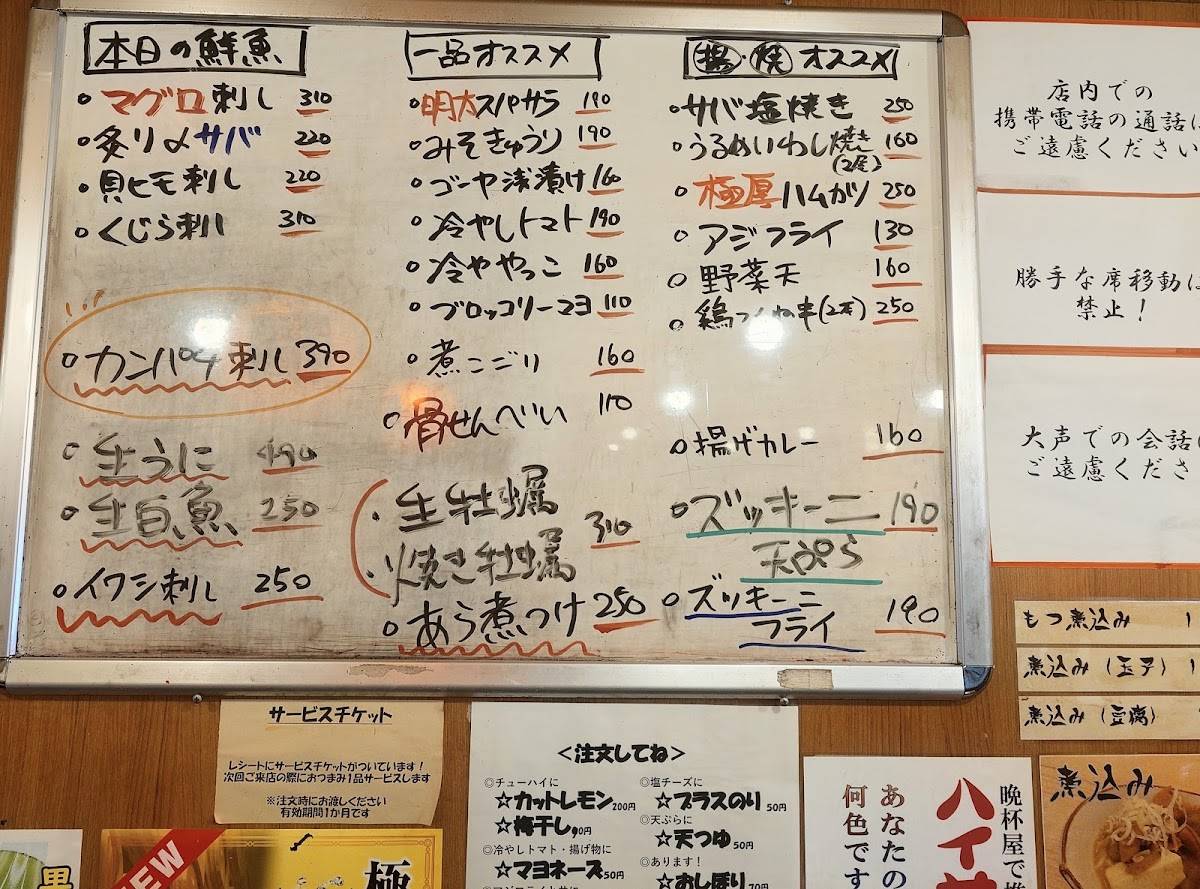 本日の鮮魚
マグロ刺し 310
炙り〆サバ 220
貝ヒモ刺し 220
くじら刺し 310
カンパチ刺し 390
生うに 490
生白魚 250
イワシ刺し 250
一品オススメ
明太スパサラ 190
みそきゅうり 190
ゴーヤ浅漬け 160
冷やしトマト 190
冷ややっこ 160
ブロッコリーマヨ 110
煮こごり 160
骨せんべい 110
生牡蠣
焼き牡蠣 310
あら煮つけ 250
揚・焼 オススメ
サバ塩焼き 250
うるめいわし焼き(2尾) 160
極厚ハムカツ 250
アジフライ 130
野菜天 160
鶏つくね串(2本) 250
揚げカレー 160
ズッキーニ 190
天ぷら
ズッキーニ
フライ 190
店内での
携帯電話の通話は
ご遠慮ください
勝手な席移動は
禁止！
大声での会話は
ご遠慮くださ
もつ煮込み 1
煮込み（玉子） 1
煮込み（豆腐）
サービスチケット
レシートにサービスチケットがついています！
次回ご来店の際におつまみ1品サービスします
※注文時にお渡しください
有効期間1か月です
＜注文してね＞
◎チューハイに
☆カットレモン200円
☆梅干し
◎冷やしトマト・揚げ物に
☆マヨネーズ50円
◎塩チーズに
☆プラスのり 50円
◎天ぷらに
☆天つゆ 50円
◎あります！
☆おしぼり 70円
晩杯屋で
ハイ
あなたの
何色です
煮込み
NEW
極
黒